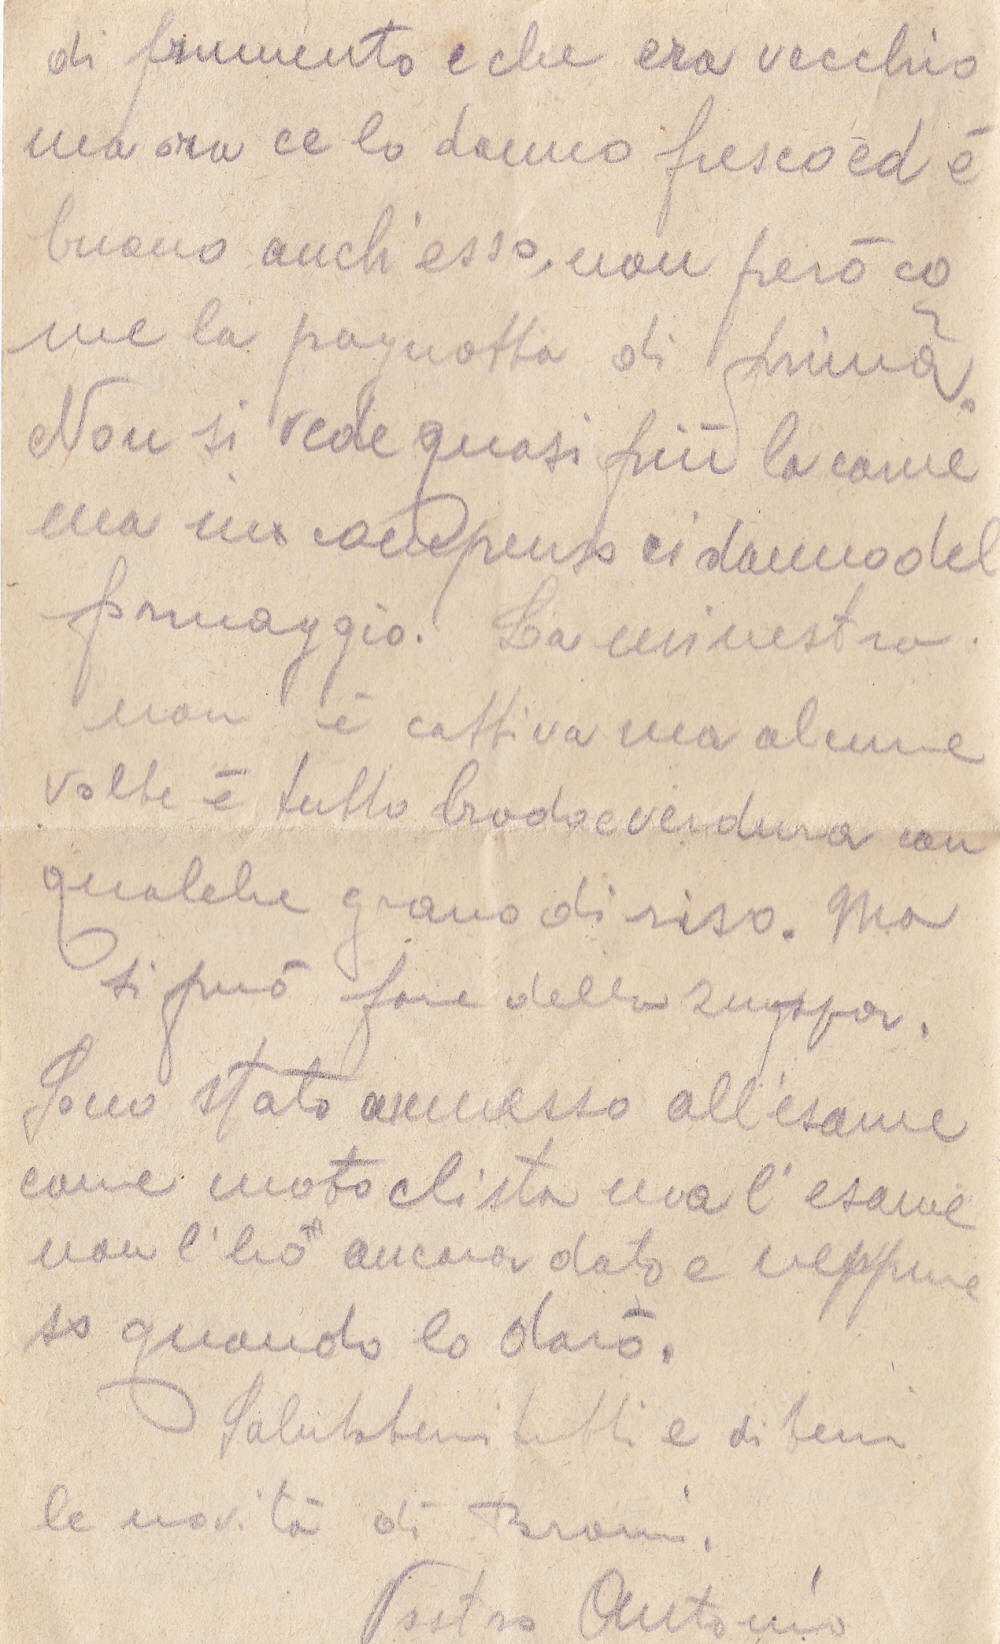 di frumento e che era vecchio
ma ora ce lo danno fresco ed è
buono anch'esso, non però co
me la pagnotta di prima.
Non si vede quasi più la carne
ma in compenso ci danno del
formaggio. La minestra
non è cattiva ma alcune
volte è tutto brodo e verdura con
qualche grano di riso. Ma
si può fare della zuppa.
Sono stato ammesso all'esame
come motoclista ma l'esame
non l'hò ancora dato e neppure
so quando lo darò.
Salutatemi tutti e ditemi
le novità di Broni.
Vostro Antonio